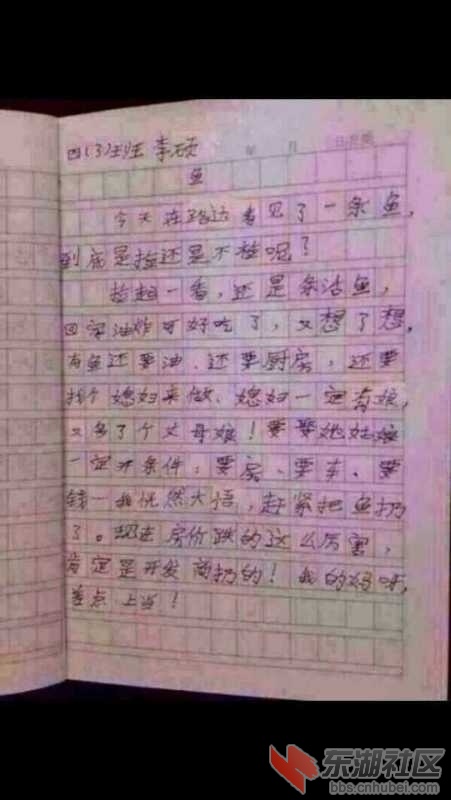 四(3)班 李硕
年 月 日
鱼
今天在路边看见了一条鱼,
到底是捡还是不捡呢?
捡起一看,还是条活鱼,
回家油炸可好吃了,又想了想,
有鱼还要油、还要厨房,还要
找个媳妇来做、媳妇一定有娘,
又多了个丈母娘!要娶她姑娘
一定开条件:要房、要车、要
钱一我恍然大悟,赶紧把鱼扔
了。现在房价跌的这么厉害,
肯定是开发商扔的!我的妈呀,
差点上当!
东湖社区
bbs.cnhubei.com